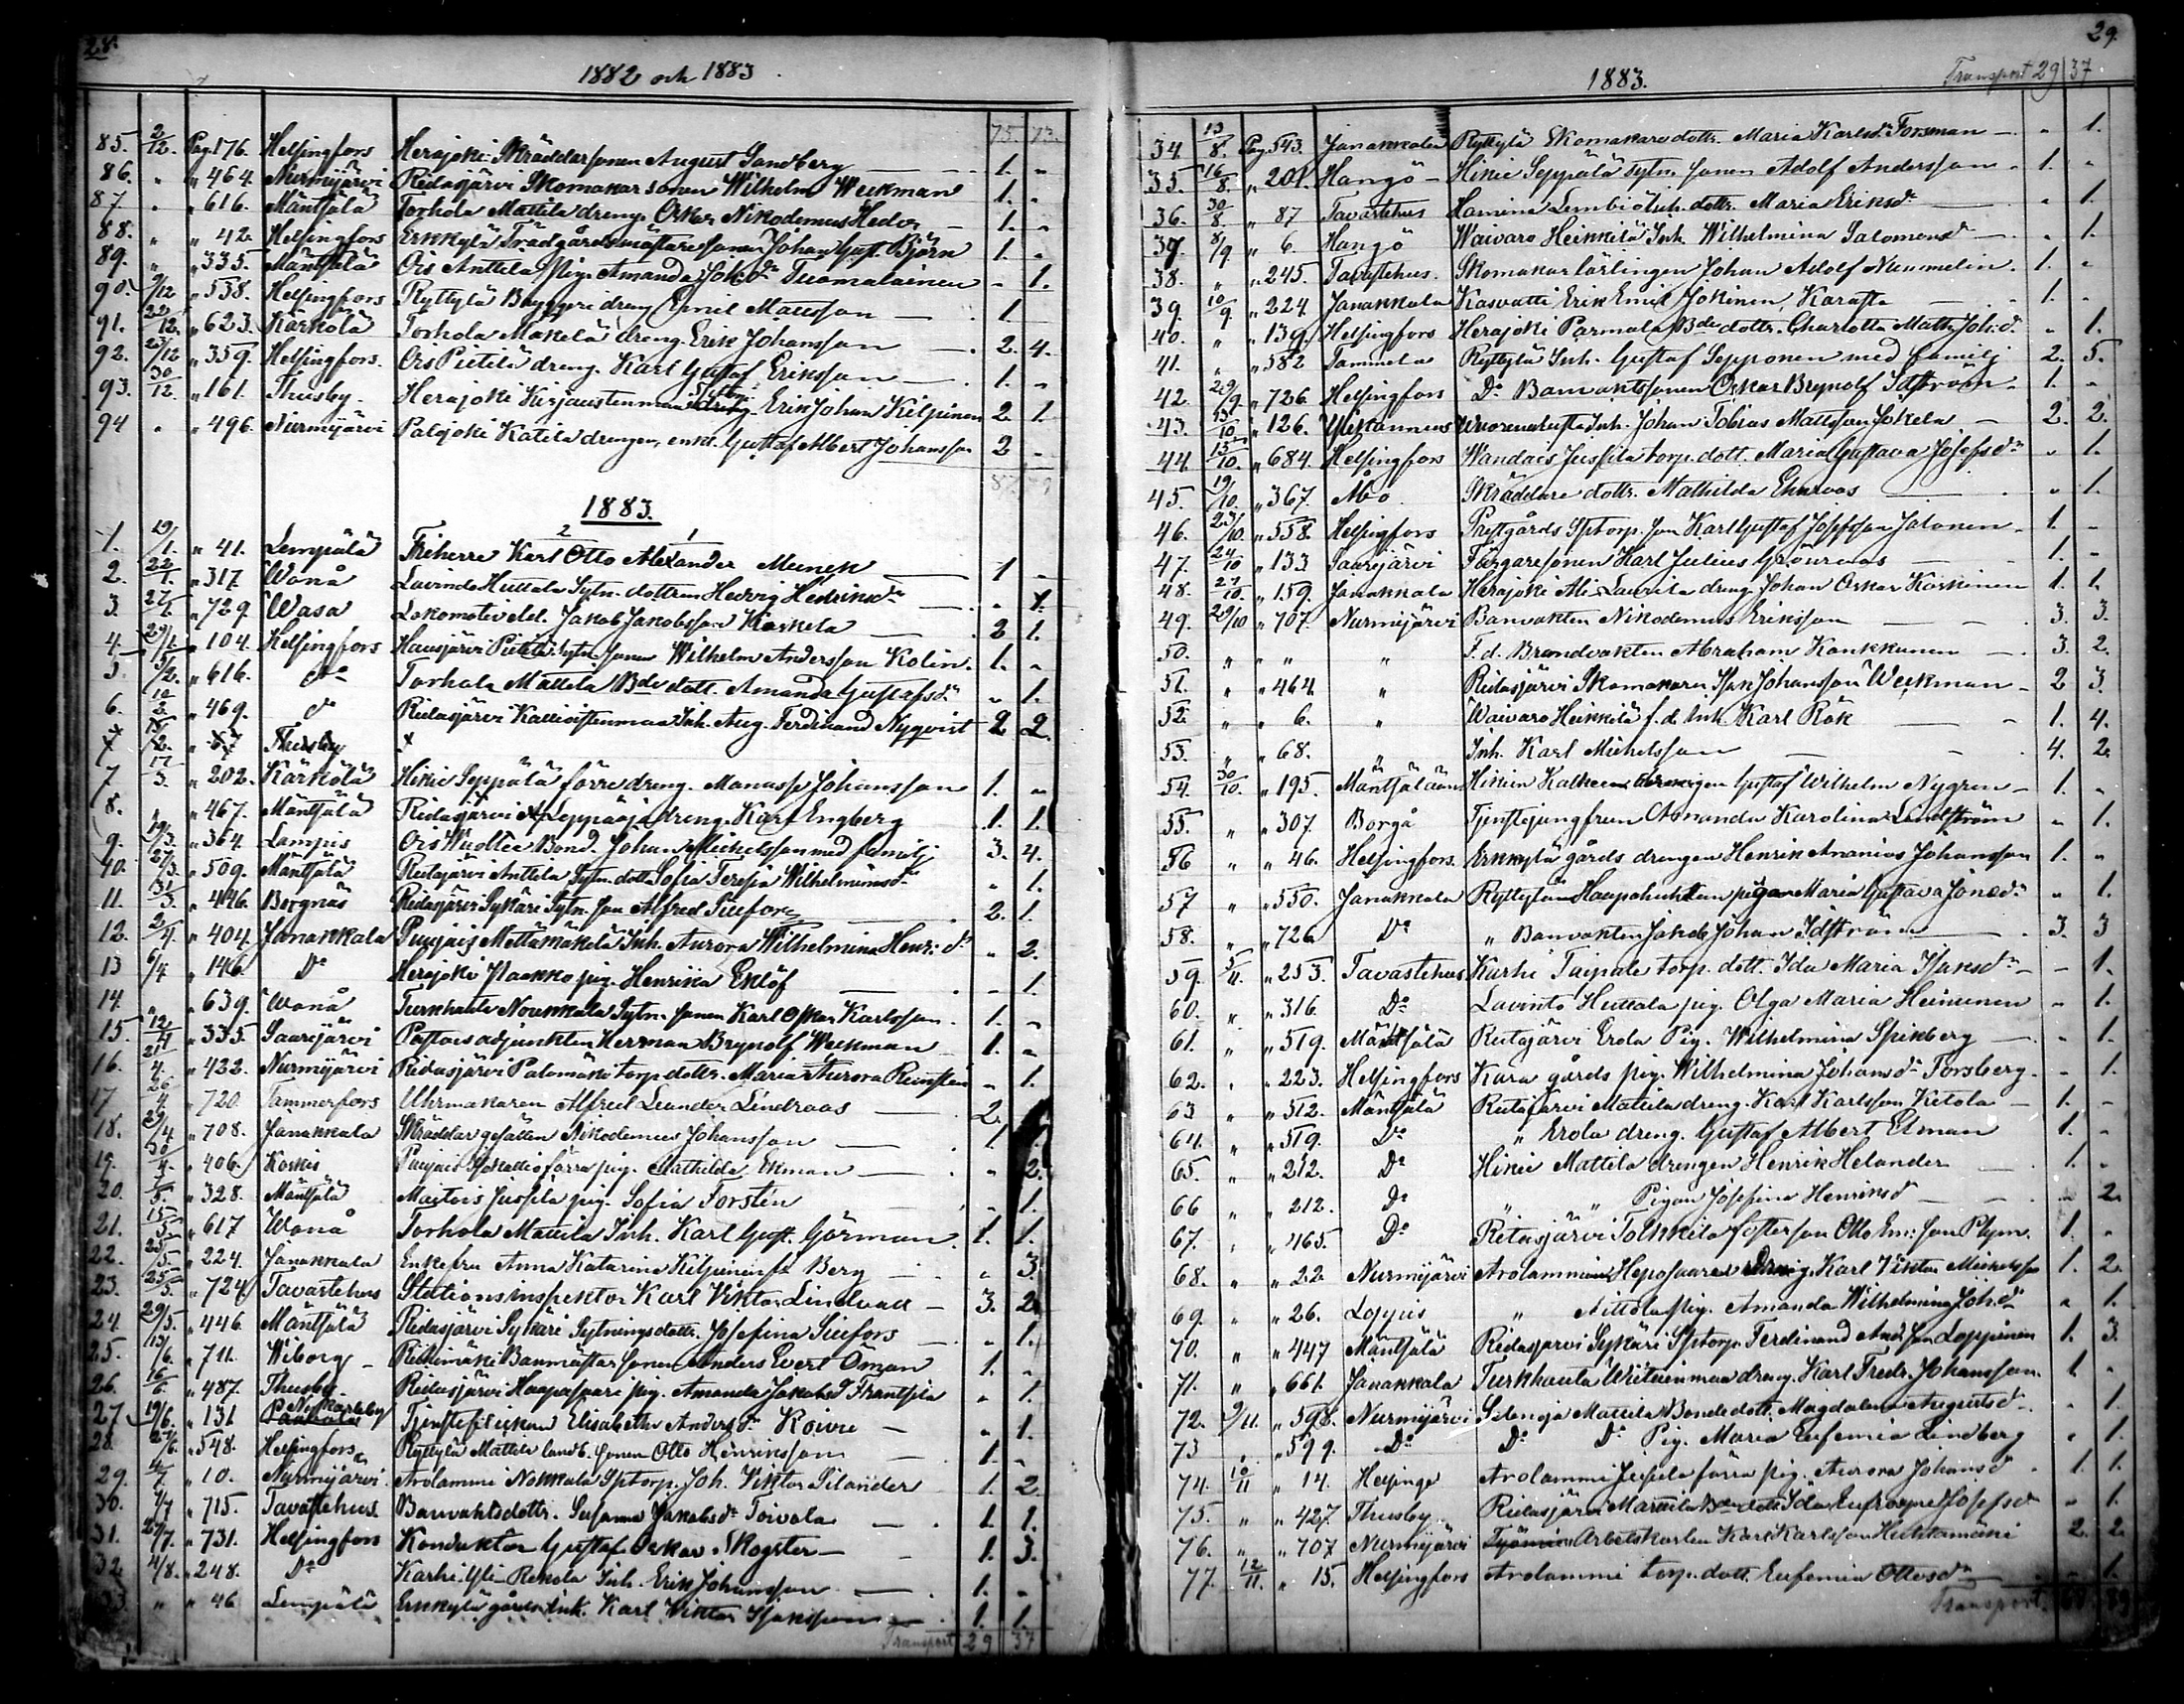 28.
1882 och 1883
75. 73.
85. 2/12. Pag. 176. Helsingfors Herajoki Skräddarsonen August Sandberg 1. "
86. " " 464. Nurmijärvi Ridasjärvi Skomakarsonen Wilhelm Weckman 1. "
87 " " 616. Mäntsälä Torhola Mattila dreng. Oskar Nikodemus Heder 1. "
88. " " 42. Helsingfors Erkkylä Trädgårdsmästaresonen Johan Gust. Björn 1. "
89. " " 335. Mäntsälä Ois Anttila pig. Amanda Joh.dr Tuomalainen " 1.
90. 9/12 " 538. Helsingfors Ryttylä Bryggeridreng Emil Mattsson 1
91. 22/12. " 623. Kärkölä Torhola Makelä dreng. Erik Johansson 2. 4.
92. 23/12 " 359. Helsingfors. Ois Pietilä dreng. Karl Gustaf Eriksson 1. "
93. 30/12. " 161. Thusby. Herajoki Kirjaustenmaa Erik Johan Kilpinen 2. 1.
94 " " 496. Nurmijärvi Palojoki Katila drengen, enkl. Gustaf Albert Johansson 2 "
1883.
1. 19/1. " 41. Lempälä Friherre Karl Otto Alexander Munck 1 "
2. 22/1. " 317. Wånå Lavinto Huttala Sytn. dottren Hedvig Henriksdr " 1.
3. 27/1. " 729. Wasa Lokomotiveld. Jakob Jakobsson Koskela 2 1.
4. 29/1. " 104. Helsingfors Hausjärvi Pietilä Sytn. sonen Wilhelm Andersson Kolin. 1. "
5. 3/2. " 616. do Torhola Mattila Bde dott. Amanda Gustafsdr " 1.
6. " 469. do Ridasjärvi Kallioistenmaa Inh. Aug. Ferdinand Nyqvist 2 2.
7 " 67 Thusby
7 17/3. " 202. Kärkölä Hikiä Seppälä förre dreng. Manasse Johansson 1. "
8. " " 467. Mäntsälä Ridasjärvi Leppäojä dreng. Karl Engberg 1. 1.
9. 19/3. " 364. Lampis Ois Wudtee Bond. Johan Mickelsson med familj 3. 4.
10. 27/3. " 509. Mäntsälä Ridasjärvi Anttila Sytn. dott. Sofia Teresia Wilhelminsdr " 1.
11. 31/3. " 446. Borgnäs Ridasjärvi Sykäri Sytn. son Alfred Siefors 2. 1.
12. 2/4. " 404. Janakkala Puujais Mettämäkelä Inh. Aurora Wilhelmina Henr. dr " 2.
13 6/4 " 146. Do Herajoki Paakko pig. Henriika Eklöf " 1.
14. " " 639. Wånå Turkhauta Nounkala Sytn. sonen Karl Oskar Karlsson. 1. "
15. 12/4 " 335. Saarijärvi Pastorsadjunkten Herman Brynolf Weckman 1. "
16. 21/4. " 422. Nurmijärvi Ridasjärvi Palomäki torp. dottr. Maria Aurora " 1.
17 26/4 " 720. Tammerfors Uhrmakaren Alfred Leander Lindroos 2.
18. 29/4 " 708. Janakkala Skräddargesällen Nikodemus Johansson 1.
19. 30/4. " 406. Koskis Puujais förra pig. Mathilda Ekman " 2.
20. 7/5. " 328. Mäntsälä Maitois Jussila pig. Sofia Forstén 1.
21. 15/5 " 617 Wånå Torhola Mattila Inh. Karl Gust. Görman. 1. 1.
22. 25/5. " 224. Janakkala Enkefru Anna Katarina Kilpinen fr Berg " 3.
23. 25/5. " 724 Tavastehus Stationsinspektor Karl Viktor Lindvall 3. 2.
24. 29/5. " 446 Mäntsälä Ridasjärvi Sykäri Sytningsdottr. Josefina Siefors " 1.
25. 13/6. " 711. Wiborg Riihimäki Banmästar sonen Anders Evert Öman 1. "
26. 16/6. " 487. Thusby Ridasjärvi Haapasaari pig. Amanda Jakobsd Frantsila " 1.
27 19/6. " 131 Nykarleby Tjensteflickan Elisabeth Andersdr Koivu " 1.
28. 27/6. " 548. Helsingfors Ryttylä Mattila landb. sonen Otto Henriksson 1. "
29. 4/7. " 10. Nurmijärvi Arolammi Nokkala Sptorp. Joh. Viktor Silander 1. 2.
30. 7/7 " 715. Tavastehus Banvaktsdottr. Susanna Jakobsdr Toivola 1. 1.
31. 27/7. " 731. Helsingfors Konduktör Gustaf Oskar Skogster 1. 3.
32. 4/8. " 248. Do Karhi Yli-Rekola Inh. Erik Johansson 1. "
33. " " 46 Lempälä Erkkylä gårds Ink. Karl Viktor Isaksson 1. 1.
Transport 29 37
29.
1883.
Transport 29 37
34. 13/8. Pag. 543. Janakkala Ryttylä Skomakare dottr. Maria Karlsd. Forsman " 1.
35. 16/8. " 201. Hangö Hikiä Seppälä Sytn. sonen Adolf Andersson 1. "
36. 30/8 " 87 Tavastehus Hamina Lembiö Inh. dottr. Maria Eriksdr " 1.
37. 8/9 " 6. Hangö Waivaro Heikkilä Inh. Wilhelmina Salomonsdr " 1.
38. " " 245. Tavastehus. Skomakarlärlingen Johan Adolf Nummelin. 1. "
39. 10/9 " 224. Janakkala Kasvatti Erik Emil Jokinen, Karafta 1. "
40. " " 139. Helsingfors Herajoki Parmala Bde dottr. Charlotta Math. Joh.dr " 1.
41. " " 582 Tammela Ryttylä Inh. Gustaf Sepponen med familj 2. 5.
42. 29/9. " 726. Helsingfors Do Banvaktssonen Oskar Brynolf Idström 1. "
43. 13/10 " 126. Inh. Johan Tobias Mattsson Jokela 2. 2.
44. 15/10. " 684. Helsingfors Wandais Jussila torp. dott. Maria Gustava Josefsdr " 1.
45. 19/10. " 367. Åbo. Skräddare dottr. Mathilda Ehnroos " 1.
46. 23/10. " 558. Helsingfors Prestgårds Sptorp. son Karl Gustaf Josefsson Jalonen 1. "
47. 24/10 " 133 Saarijärvi Färgaresonen Karl Julius Grönroos 1. "
48. 27/10. " 159. Janakkala Herajoki Ali-Laurila dreng. Johan Oskar Koskinen 1. 1.
49. 29/10 " 707. Nurmijärvi Banvakten Nikodemus Eriksson 3. 3.
50. " " " " F. d. Brandvakten Abraham Konkkunen 3. 2.
51. " " 464. " Ridasjärvi Skomakaren Isak Johansson Weckman 2 3.
52. " " 6. " Waivaro Heikkilä f. d. Inh. Karl Rök 1. 4.
53. " " 68. " Inh. Karl Michelsson 4. 2.
54. 30/10. " 195. Mäntsälä Hikiän drengen Gustaf Wilhelm Nygren 1. "
55. " " 307. Borgå Tjenstejungfrun Amanda Karolina Lundström " 1.
56 " " 46. Helsingfors. Erkkylä gårds drengen Henrik Ananias Johansson 1. "
57 " " 550. Janakkala Ryttylän Haapahuhtan pigan Maria Gustava Jonasdr " 1.
58. " " 726 Do " Banvakten Jakob Johan Idström 3. 3
59. 5/11. " 253. Tavastehus Karhi Taipale torp. dott. Ida Maria Isaksdr 1.
60. " " 316. Do Lavinto Huttala pig. Olga Maria Heinonen " 1.
61. " " 519. Mäntsälä Ritajärvi Erola Pig. Wilhelmina Spikberg " 1.
62. " " 223. Helsingfors Kara gårds pig. Wilhelmina Johansdr Forsberg. " 1.
63 " " 512. Mäntsälä Ritajärvi Mattila dreng. Karl Karlsson Ketola 1. "
64. " " 519. Do " Erola dreng. Gustaf Albert Elman 1. "
65. " " 212. Do Hikiä Mattila drengen Henrik Helander 1. "
66 " " 212. Do " " Pigan Josefina Henriksd " 2.
67. " " 465. Do Ritasjärvi Tolkkila fosterson Otto Em: son Plym. 1. "
68. " " 22 Nurmijärvi Arolammi Heposaare Dreng. Karl Viktor Mickelsson 1. 2.
69. " " 26. Loppis " Aittola pig. Amanda Wilhelmina Joh.dr " 1.
70. " " 447 Mäntsälä Ridasjärvi Sykäri Sptorp. Ferdinand And. son Loppinen 1. 3.
71. " " 661. Janakkala Turkhauta dreng. Karl Fredr. Johansson. 1. "
72. 9/11. " 598. Nurmijärvi Selenoja Mattila Bonde dott. Magdalena Augustsd. " 1.
73 " " 599. Do Do Do Pig. Maria Eufemia Lindberg " 1.
74. 10/11 " 14. Helsinge Arolammi Jussila förra pig. Aurora Johansd 1. 1.
75. " " 427. Thusby Ridasjärvi Marttila Bde dott. Ida Eufrosyne Josefsdr " 1.
76. " " 707 Nurmijärvi Arbetskarlen Karl Karlsson Huhtamäki 2. 2.
77. 12/11. " 15. Helsingfors Arolammi torp. dott. Eufemia Ottosdr " 1.
Transport. 89